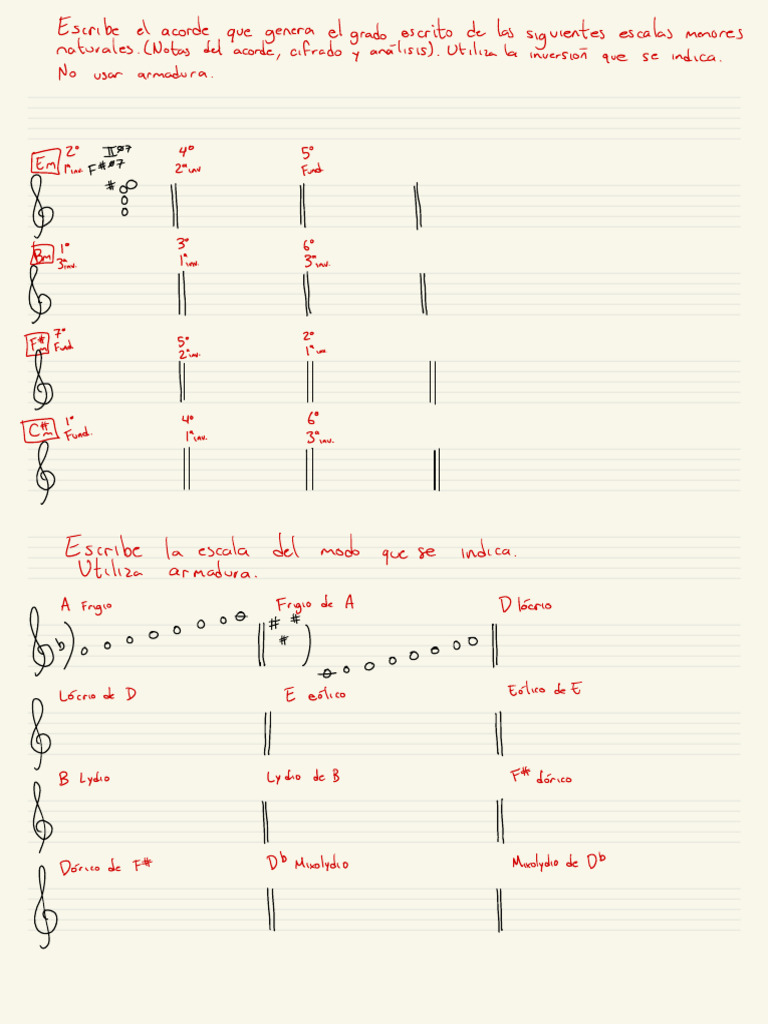 Escribe el acorde que genera el grado escrito de las siguientes escalas menores
naturales. (Notas del acorde, cifrado y análisis). Utiliza la inversión que se indica.
No usar armadura.
Em 2º IIø7 4º 5º
1ªinv. F#ø7 2ªinv Fund
Bm 1º 3º 6º
3ªinv. 1ªinv. 3ªinv.
F#m 7º 5º 2º
Fund 2ªinv. 1ªinv.
C#m 1º 4º 6º
Fund. 1ªinv. 3ªinv.
Escribe la escala del modo que se indica.
Utiliza armadura.
A Frigio Frigio de A D lócrio
Lócrio de D E eólico Eólico de E
B Lydio Lydio de B F# dórico
Dórico de F# Db Mixolydio Mixolydio de Db